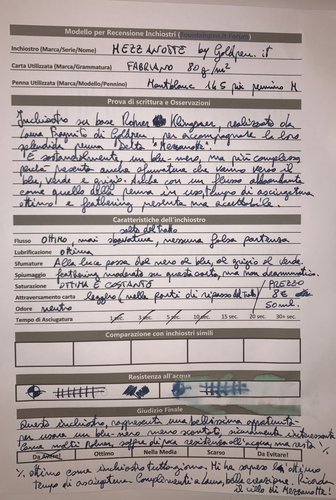 Modello per Recensione Inchiostri (fountainpen.it Forum)
Inchiostro (Marca/Serie/Nome) MEZZANOTTE by Goldpen.it
Carta Utilizzata (Marca/Grammatura) FABRIANO 80 g/m²
Penna Utilizzata (Marca/Modello/Pennino) Montblanc 145 più pennino M
Prova di scrittura e Osservazioni
Inchiostro su base Rohrer Klingner, realizzato da
Laura di Goldpen, per accompagnare la loro
splendida penna Delta "Mezzanotte".
È sostanzialmente un blu-nero, ma più complesso
perché presenta anche sfumature che vanno verso il
blu, verde e grigio. Nella con un flusso abbondante
come quello della penna in uso, tempo di asciugatura
ottimo! e feathering presente ma accettabile.
Caratteristiche dell'inchiostro
salto del tratto
Flusso OTTIMO, mai sbavature, nessuna falsa partenza
Lubrificazione ottima
Sfumature Alla luce passa dal nero al blu, al grigio al verde.
Spiumaggio feathering moderato su questa carta, ma non drammatico.
Saturazione OTTIMA E COSTANTE PREZZO
Attraversamento carta leggero (nelle parti di ripasso del tratto) 8€
Odore neutro 50 ml.
Tempo di Asciugatura 5 sec. 10 sec. 15 sec. 20 sec. 30+ sec.
Comparazione con inchiostri simili
Resistenza all'acqua
Giudizio Finale
Questo inchiostro, rappresenta una bellissima opportunità
per usare un blu-nero meno scontato, sicuramente interessante
Come molti Rohrer, soffre di poca resistenza all'acqua, ma resta %
Da Avere! Ottimo Nella Media Scarso Da Evitare!
% ottimo come inchiostro tuttogiorno. Mi ha sorpreso l'ottimo
tempo di asciugatura. Complimenti a Laura, bella creazione. Ricorda
il cielo di Mezzanotte!